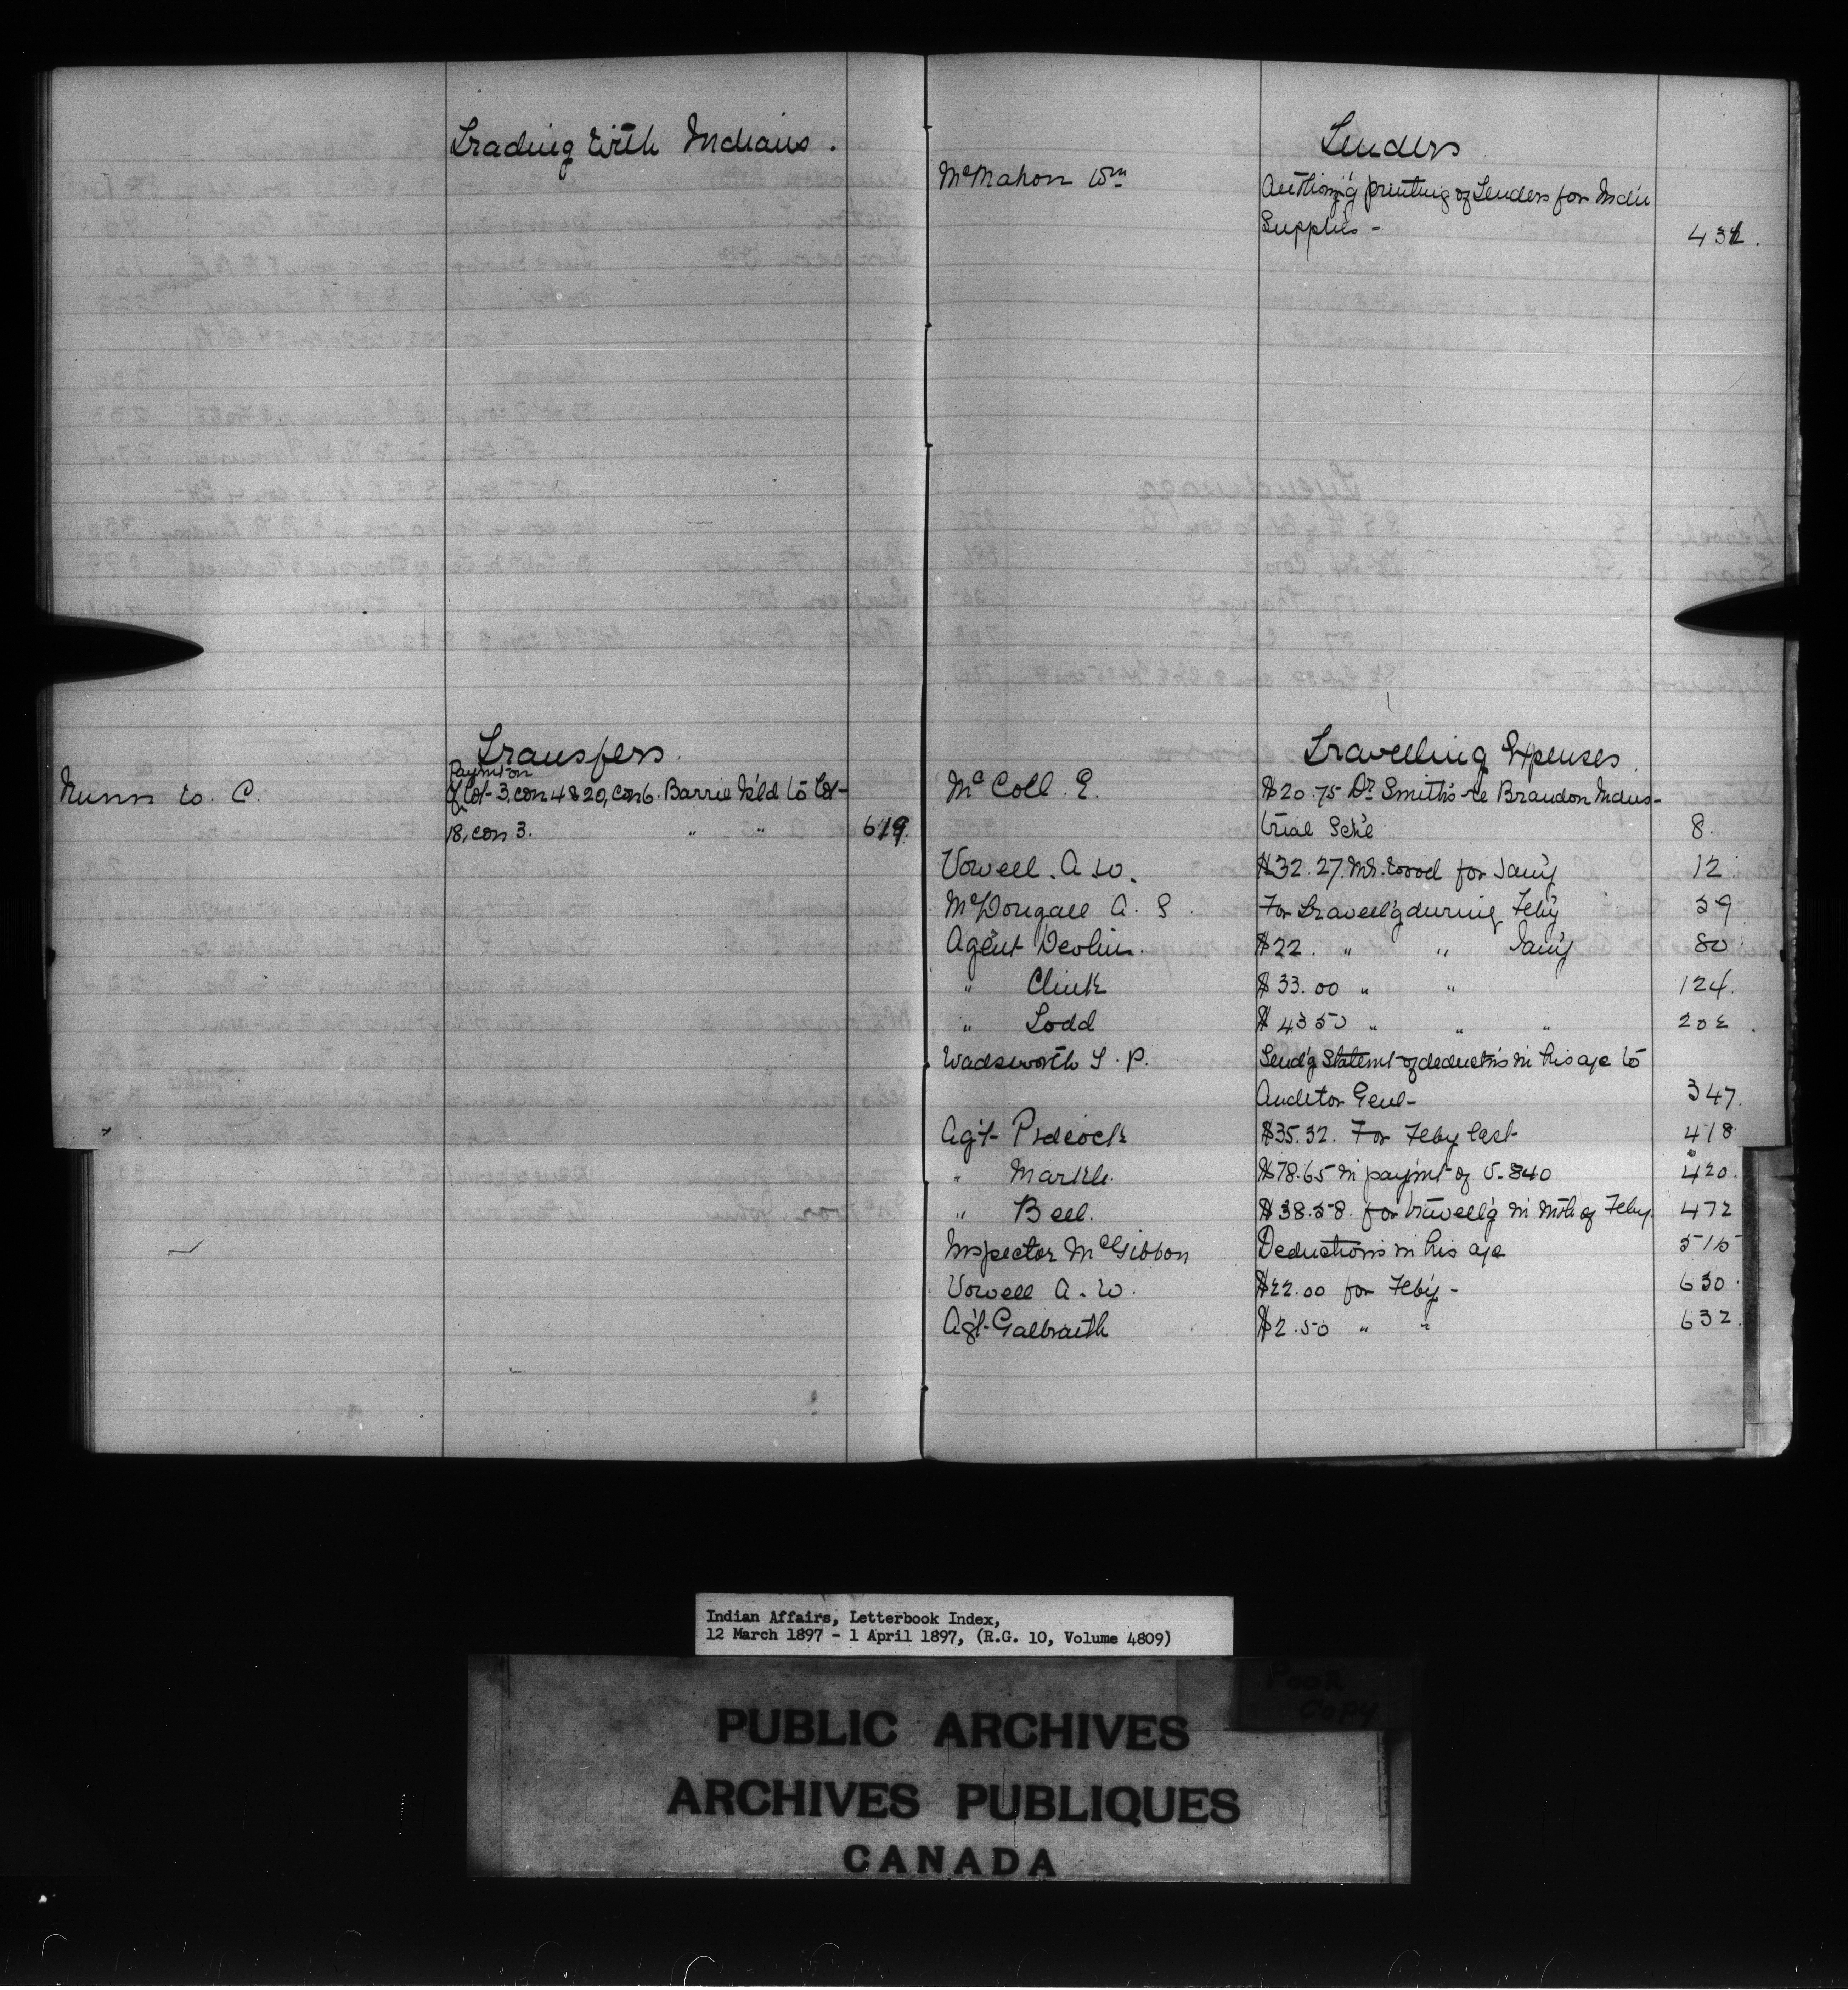 Trading with Indians.
Transfers
Paymt on
Lot 3, con 4 & 20, con 6. Barrie Isl'd to Lot
Nunn W. C.
18, con 3. " " 619.
Tenders
McMahon Wm
Authoriz'g printing of Tenders for Indn
Supplies - 432.
Travelling Expenses
McColl. E. $20.75 Dr Smith's re Brandon Indus-
trial Sch'l 8.
Vowell. A. W. $32.27. Mr. Wood for Jan'y 12.
McDougall A. S. For travell'g during Feb'y 39
Agent Devlin. $22. " " Jan'y 80
" Clink $33.00 " " 124.
" Todd $43 50 " " " 202.
Wadsworth T. P. Send'g Statemt of deduct'ns in his a/c to
Auditor Genl - 347.
Ag't Pidcock $35.32. For Feby last 418
" Markle. $78.65 in paymt of V. 840 420.
" Bell. $38.58. for travell'g in mth of Feby. 472
Inspector McGibbon Deductions in his a/c 515
Vowell A. W. $22.00 for Feb'y - 630.
Ag't Galbraith $2.50 " " 632.
Indian Affairs, Letterbook Index,
12 March 1897 - 1 April 1897, (R.G. 10, Volume 4809)
Poor
Copy
PUBLIC ARCHIVES
ARCHIVES PUBLIQUES
CANADA